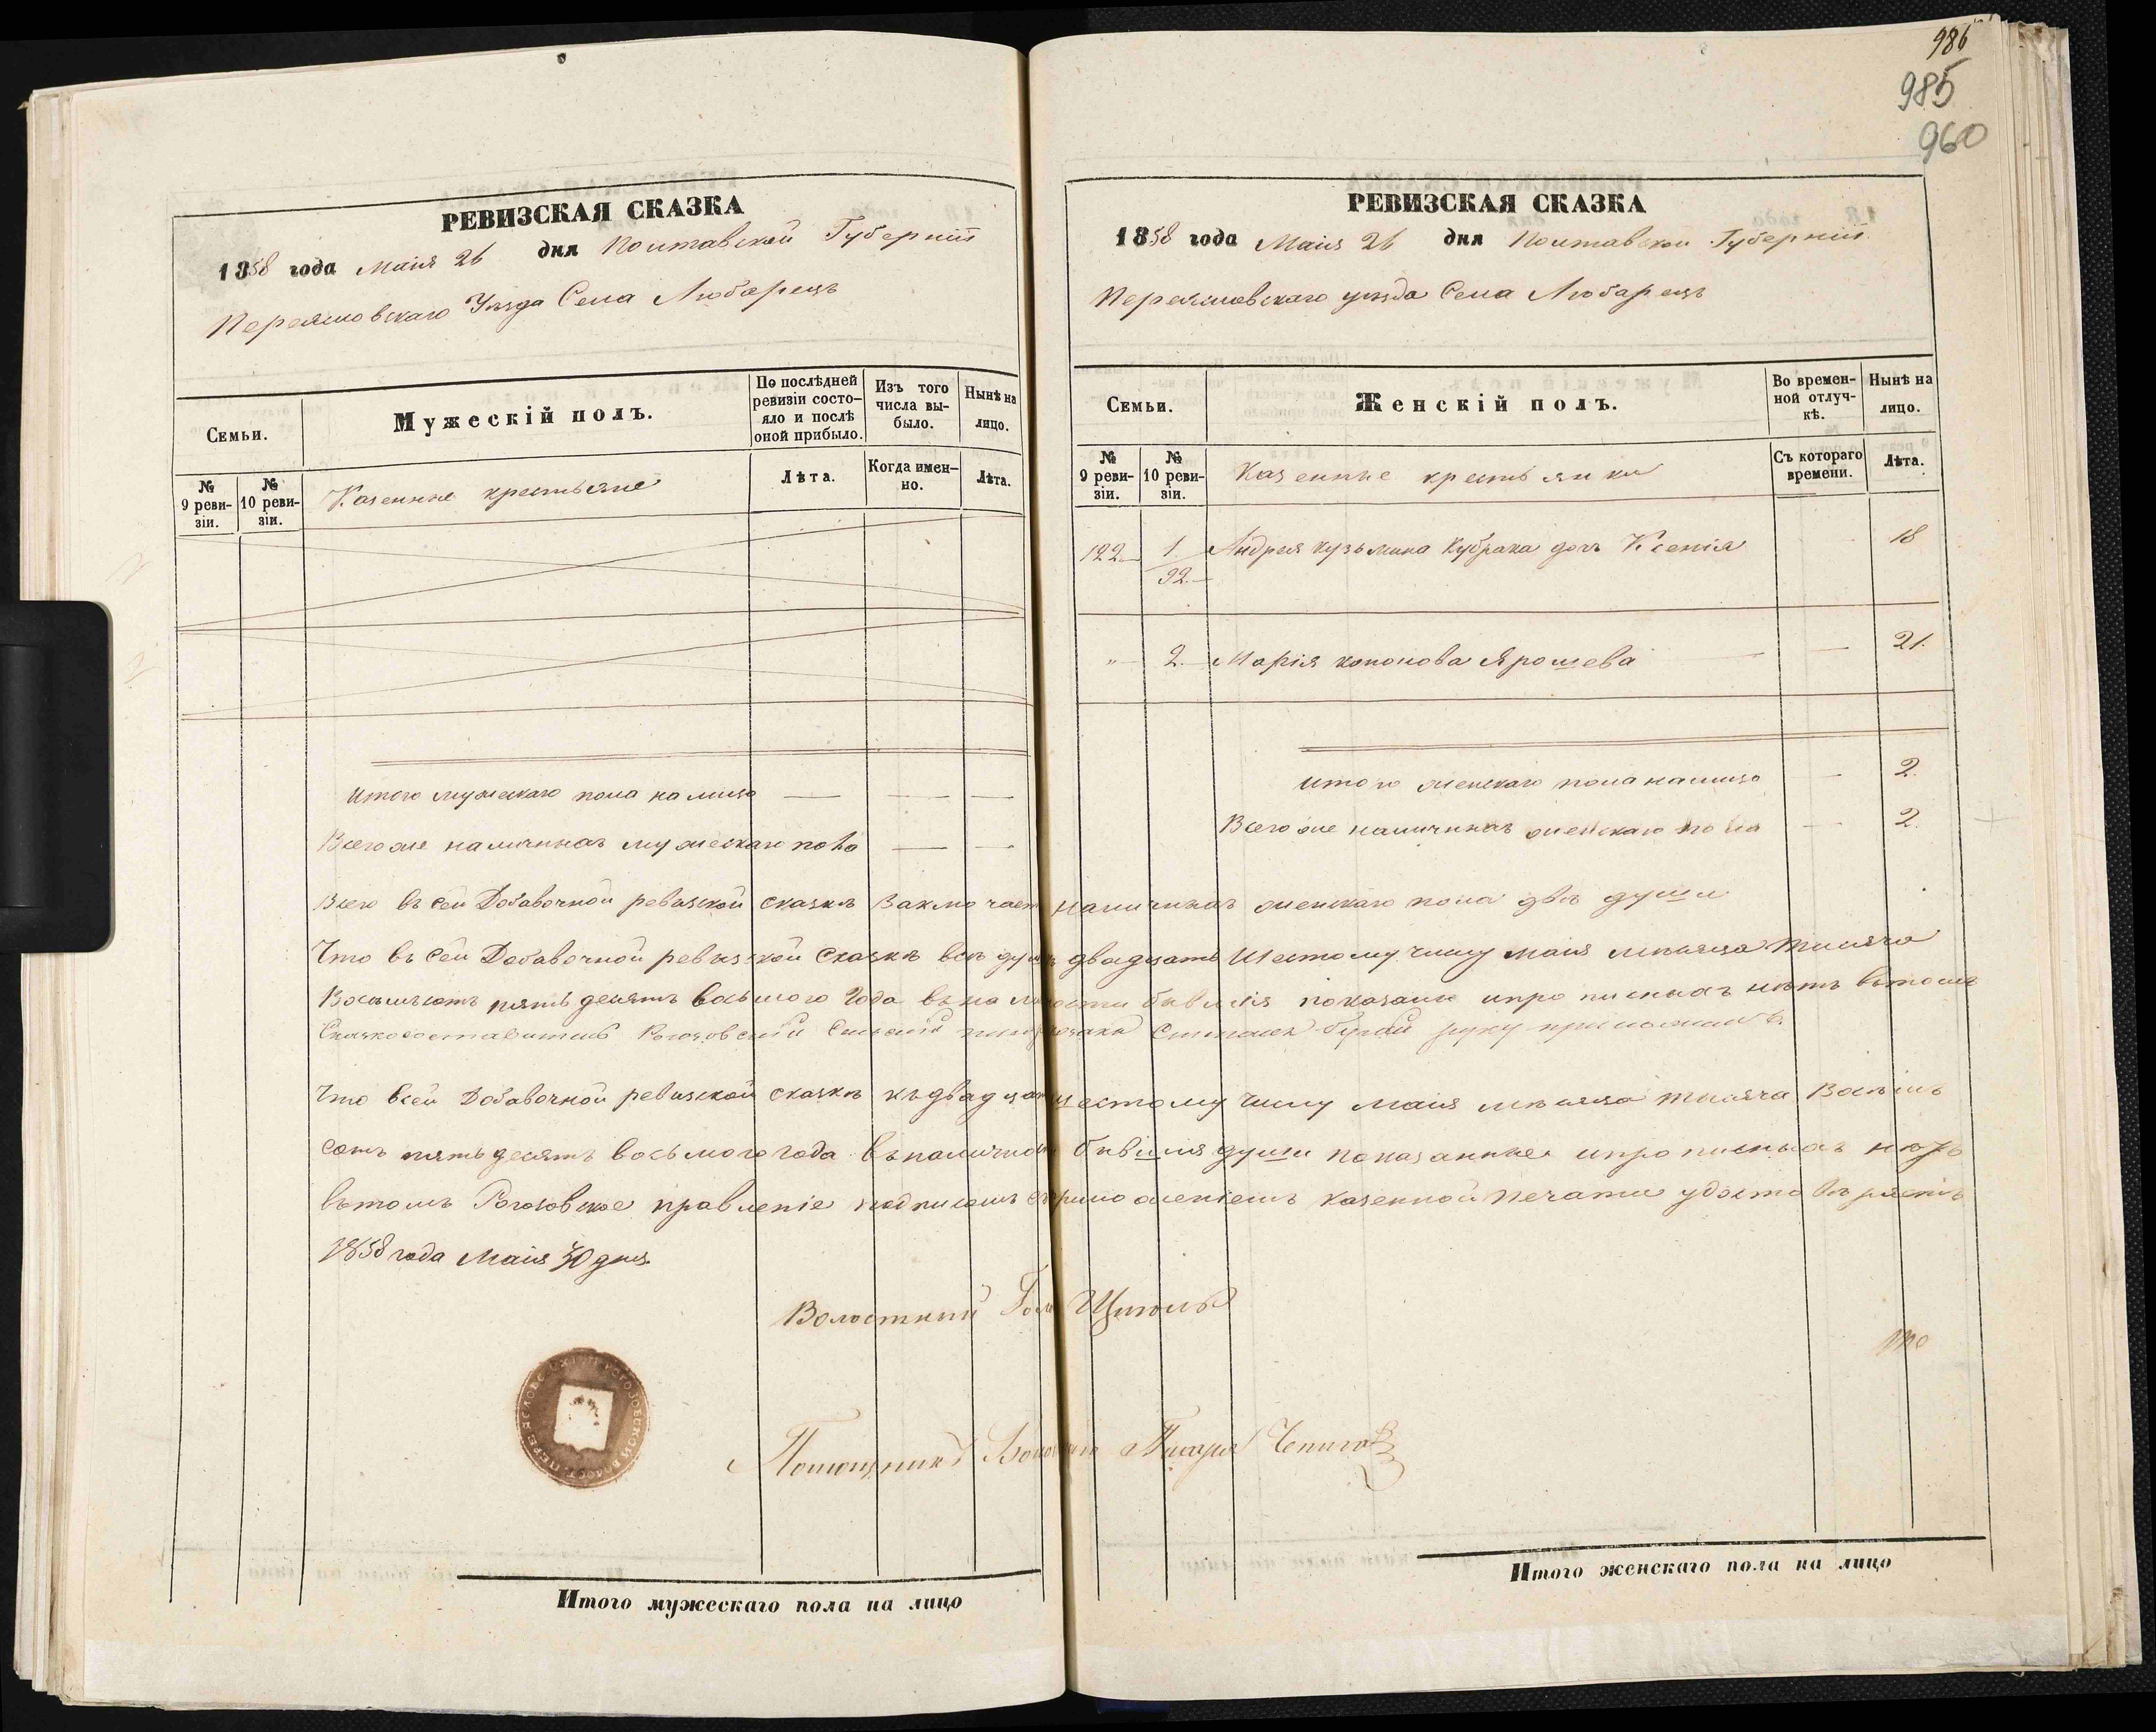 986
985
960
РЕВИЗСКАЯ СКАЗКА
1858 года Маія 26 дня Полтавской Губерніи
Переяславскаго Уѣзда Села Любарецъ
Семьи.
Мужескій полъ.
По послѣдней ревизіи состо-
яло и послѣ оной прибыло.
Изъ того числа вы-
было.
Нынѣ на лицо.
№ 9 реви-
зіи.
№ 10 реви-
зіи.
Казенные крестьяне
Лѣта.
Когда имен-
но.
Лѣта.
Итого мужескаго пола на лицо
Всего же наличныхъ мужескаго пола
РЕВИЗСКАЯ СКАЗКА
1858 года Маія 26 дня Полтавской Губерніи
Переяславскаго уѣзда Села Любарецъ
Семьи.
Женскій полъ.
Во времен-
ной отлуч-
кѣ.
Нынѣ на лицо.
№ 9 реви-
зіи.
№ 10 реви-
зіи.
Казенные крестьянки
Съ котораго времени.
Лѣта.
122 1 Андрея Кузьмина Кубрака дочь Ксенія 18
92
" 2. Марія Кононова Ярошева 21.
Итого женскаго пола налицо 2.
Всего же наличныхъ женскаго пола 2.
Всего въ сей Добавочной ревизской сказкѣ Заключает наличныхъ женскаго пола двѣ души
Что въ сей Добавочной ревизской Сказкѣ всѣ двадцать Шестому числу Маія мѣсяца тысяча
Восемьсотъ пятьдесятъ восьмого Года бывшія показаны ипрописныхъ нѣтъ вътомъ
руку приложилъ.
Что всей Добавочной ревизской сказкѣ къдвадцать шестому числу Маія мѣсяца тысяча Восѣмь
сотъ пятьдесятъ восьмого года въналичности бывшія души показанные ипрописныхъ нѣтъ
вътомъ Рогозовское правленіе подписомъ съприложеніемъ казенной печати удостовѣряетъ
1858 года Маія 30 дня.
Волостный Голова
Помощникъ Волостнаго Писаря
Итого мужескаго пола на лицо
Итого женскаго пола на лицо